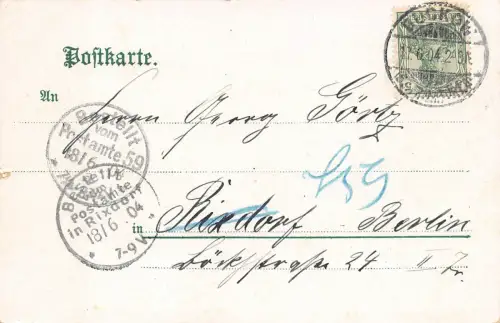 Postkarte.
An
Herrn Georg Görtz
in Rixdorf - Berlin
Böckhstraße 24 II Tr.
Bestellt
vom
Postamte 59
18/6
Bestellt
vom
Postamte
in Rixdorf
18/6 04
7-9V
BUCKOW